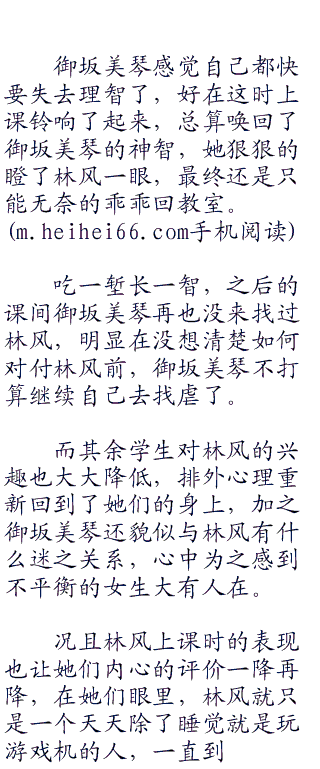 御坂美琴感觉自己都快
要失去理智了，好在这时上
课铃响了起来，总算唤回了
御坂美琴的神智，她狠狠的
瞪了林风一眼，最终还是只
能无奈的乖乖回教室。
(m.heihei66.com手机阅读)
吃一堑长一智，之后的
课间御坂美琴再也没来找过
林风，明显在没想清楚如何
对付林风前，御坂美琴不打
算继续自己去找虐了。
而其余学生对林风的兴
趣也大大降低，排外心理重
新回到了她们的身上，加之
御坂美琴还貌似与林风有什
么迷之关系，心中为之感到
不平衡的女生大有人在。
况且林风上课时的表现
也让她们内心的评价一降再
降，在她们眼里，林风就只
是一个天天除了睡觉就是玩
游戏机的人，一直到